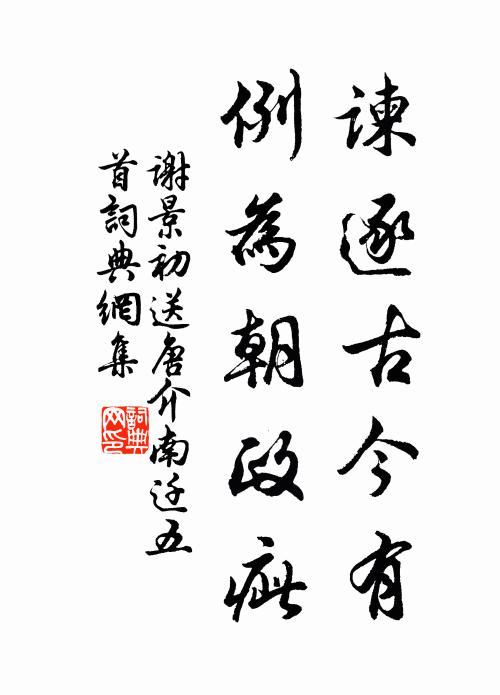 諫逐古今有
例為朝政疵
谢景初送唐介南迁五
首詞典網集
詞典
网印